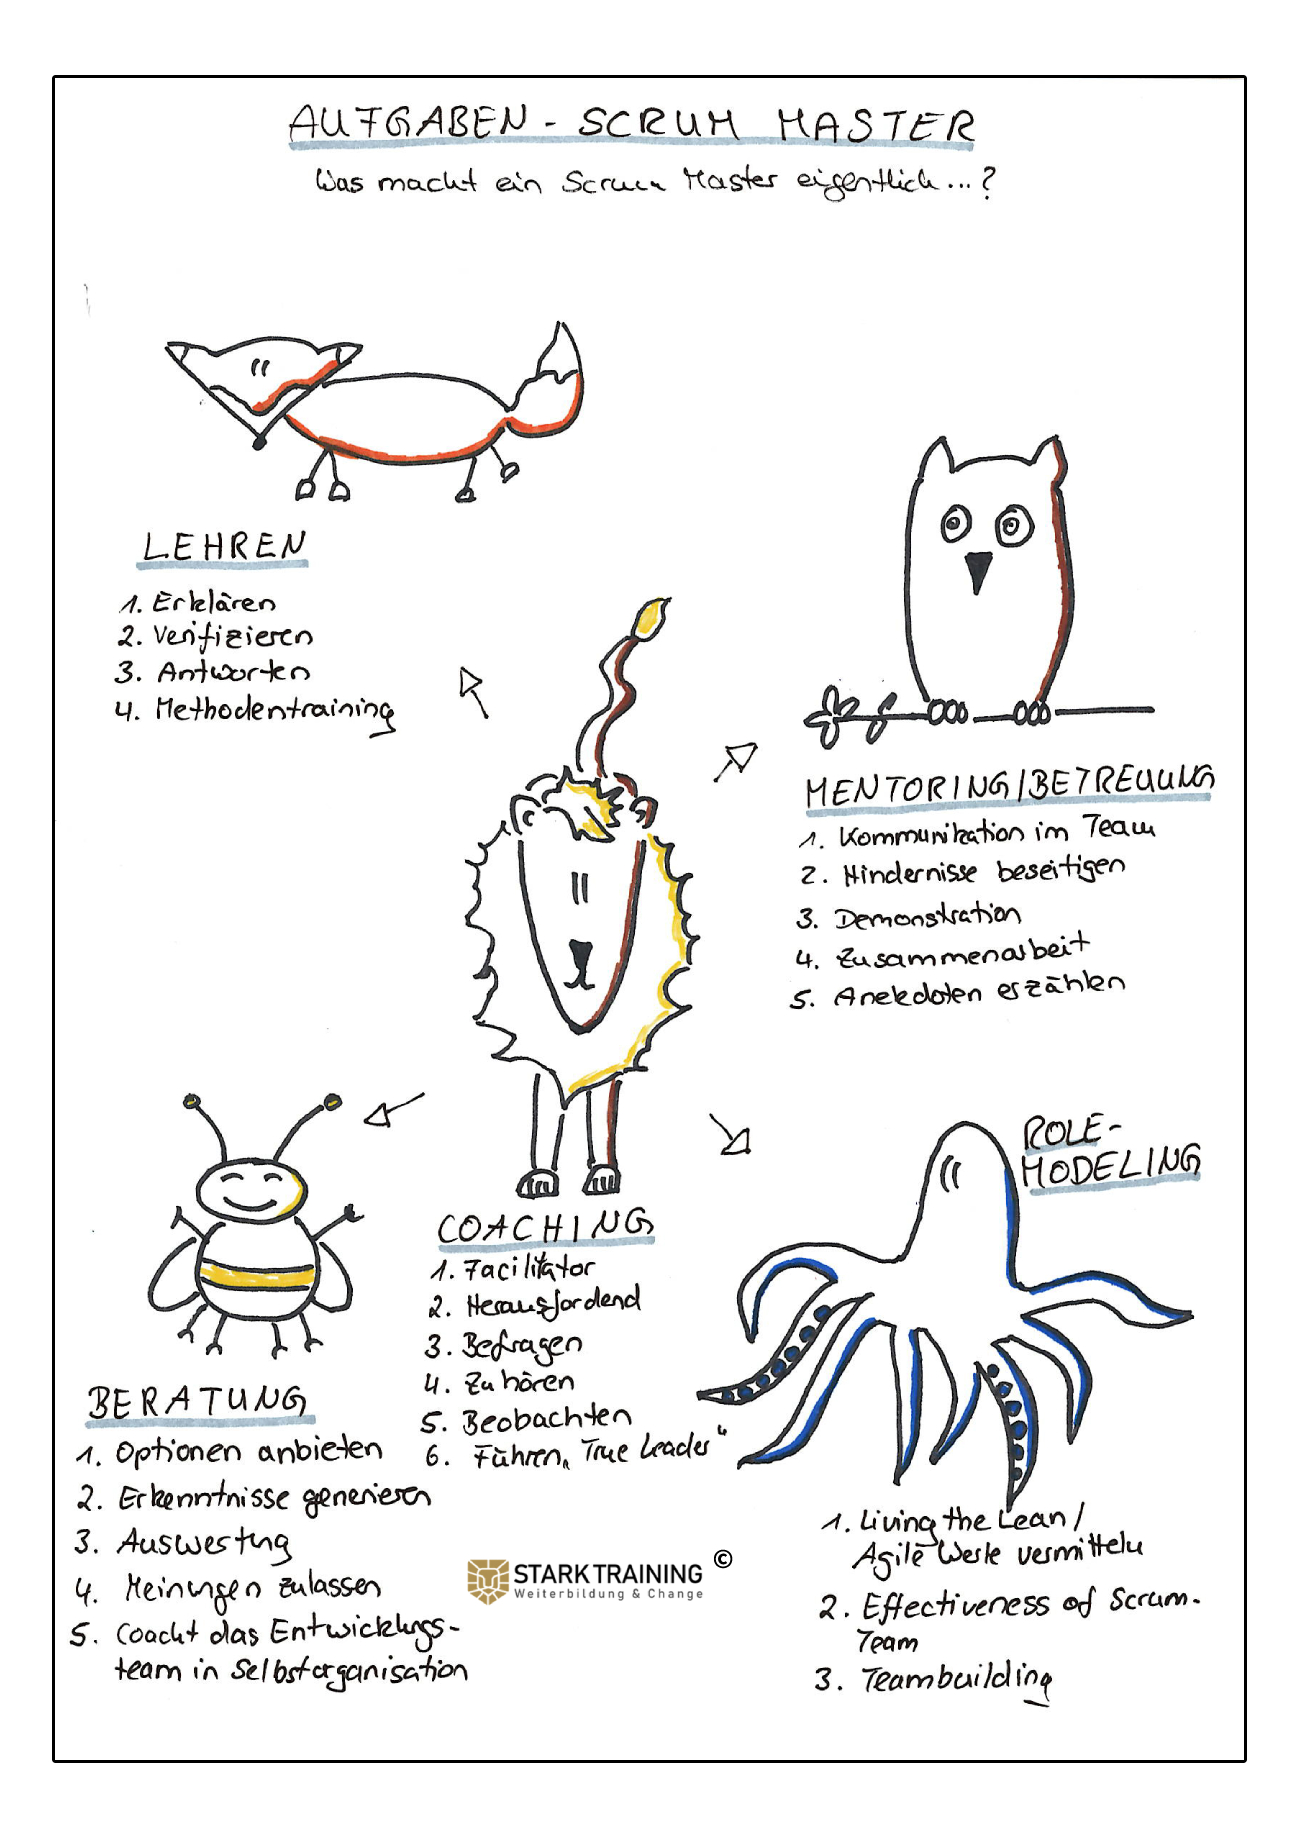 AUFGABEN - SCRUM MASTER
Was macht ein Scrum Master eigentlich...?
LEHREN
1. Erklären
2. Verifizieren
3. Antworten
4. Methodentraining
MENTORING/BETREUUNG
1. Kommunikation im Team
2. Hindernisse beseitigen
3. Demonstration
4. Zusammenarbeit
5. Anekdoten erzählen
COACHING
1. Facilitator
2. Herausfordend
3. Befragen
4. Zuhören
5. Beobachten
6. Führen „True Leader"
ROLE-
MODELING
1. Living the Lean /
Agile Werte vermitteln
2. Effectiveness of Scrum-
Team
3. Teambuilding
BERATUNG
1. Optionen anbieten
2. Erkenntnisse generieren
3. Auswertung
4. Meinungen zulassen
5. Coacht das Entwicklungs-
team in Selbstorganisation
STARK TRAINING ©
Weiterbildung & Change